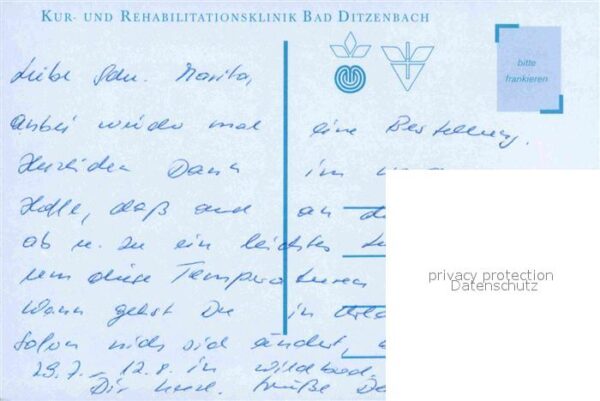 KUR- UND REHABILITATIONSKLINIK BAD DITZENBACH
bitte
frankieren
Liebe Schw. Marita,
anbei wieder mal eine Bestellung.
Herzlichen Dank im
Hoffe, daß auch an
ab u. zu ein leichtes
um diese Temperaturen
Wann gehst Du in Urla
sich ändert,
29.7. – 12.8. in Wildbad.
Dir herzl. Grüße De
privacy protection
Datenschutz